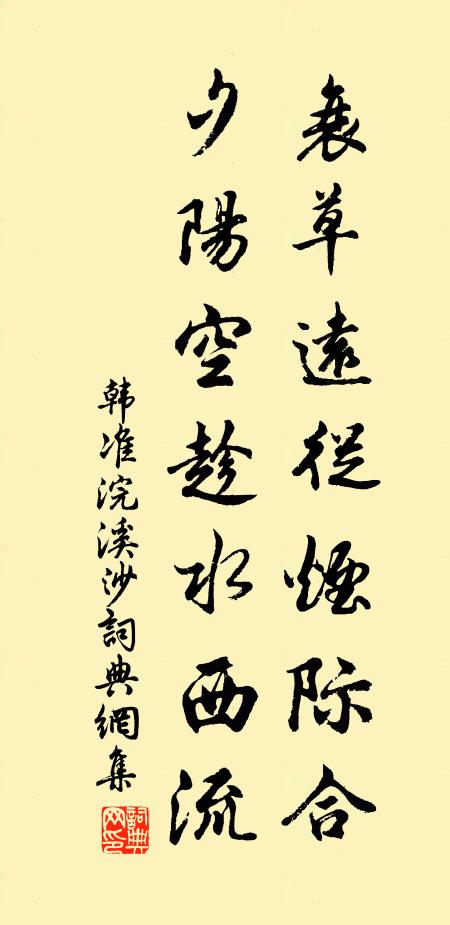 衰草遠從煙际合
夕陽空趁水西流
韩准浣溪沙詞典網集
詞典网印